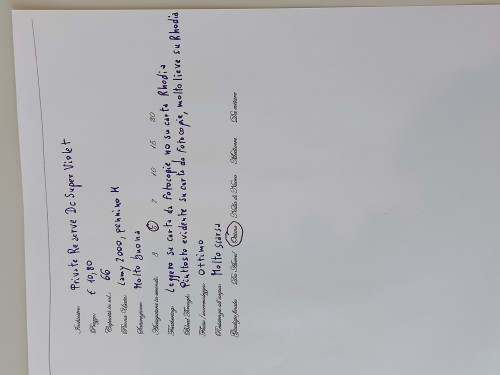 Inchiostro: Private Reserve Dc Super Violet
Prezzo: € 10,80
Capacità in ml.: 66
Penna Usata: Lamy 2000, pennino M
Saturazione: Molto buona
Asciugatura in secondi: 3 5 7 10 15 30
Feathering: Leggero su carta da fotocopie no su carta Rhodia
Bleed Through: Piuttosto evidente su carta da fotocopie, molto lieve su Rhodia
Flusso / scorrevolezza: Ottimo
Resistenza all'acqua: Molto scarsa